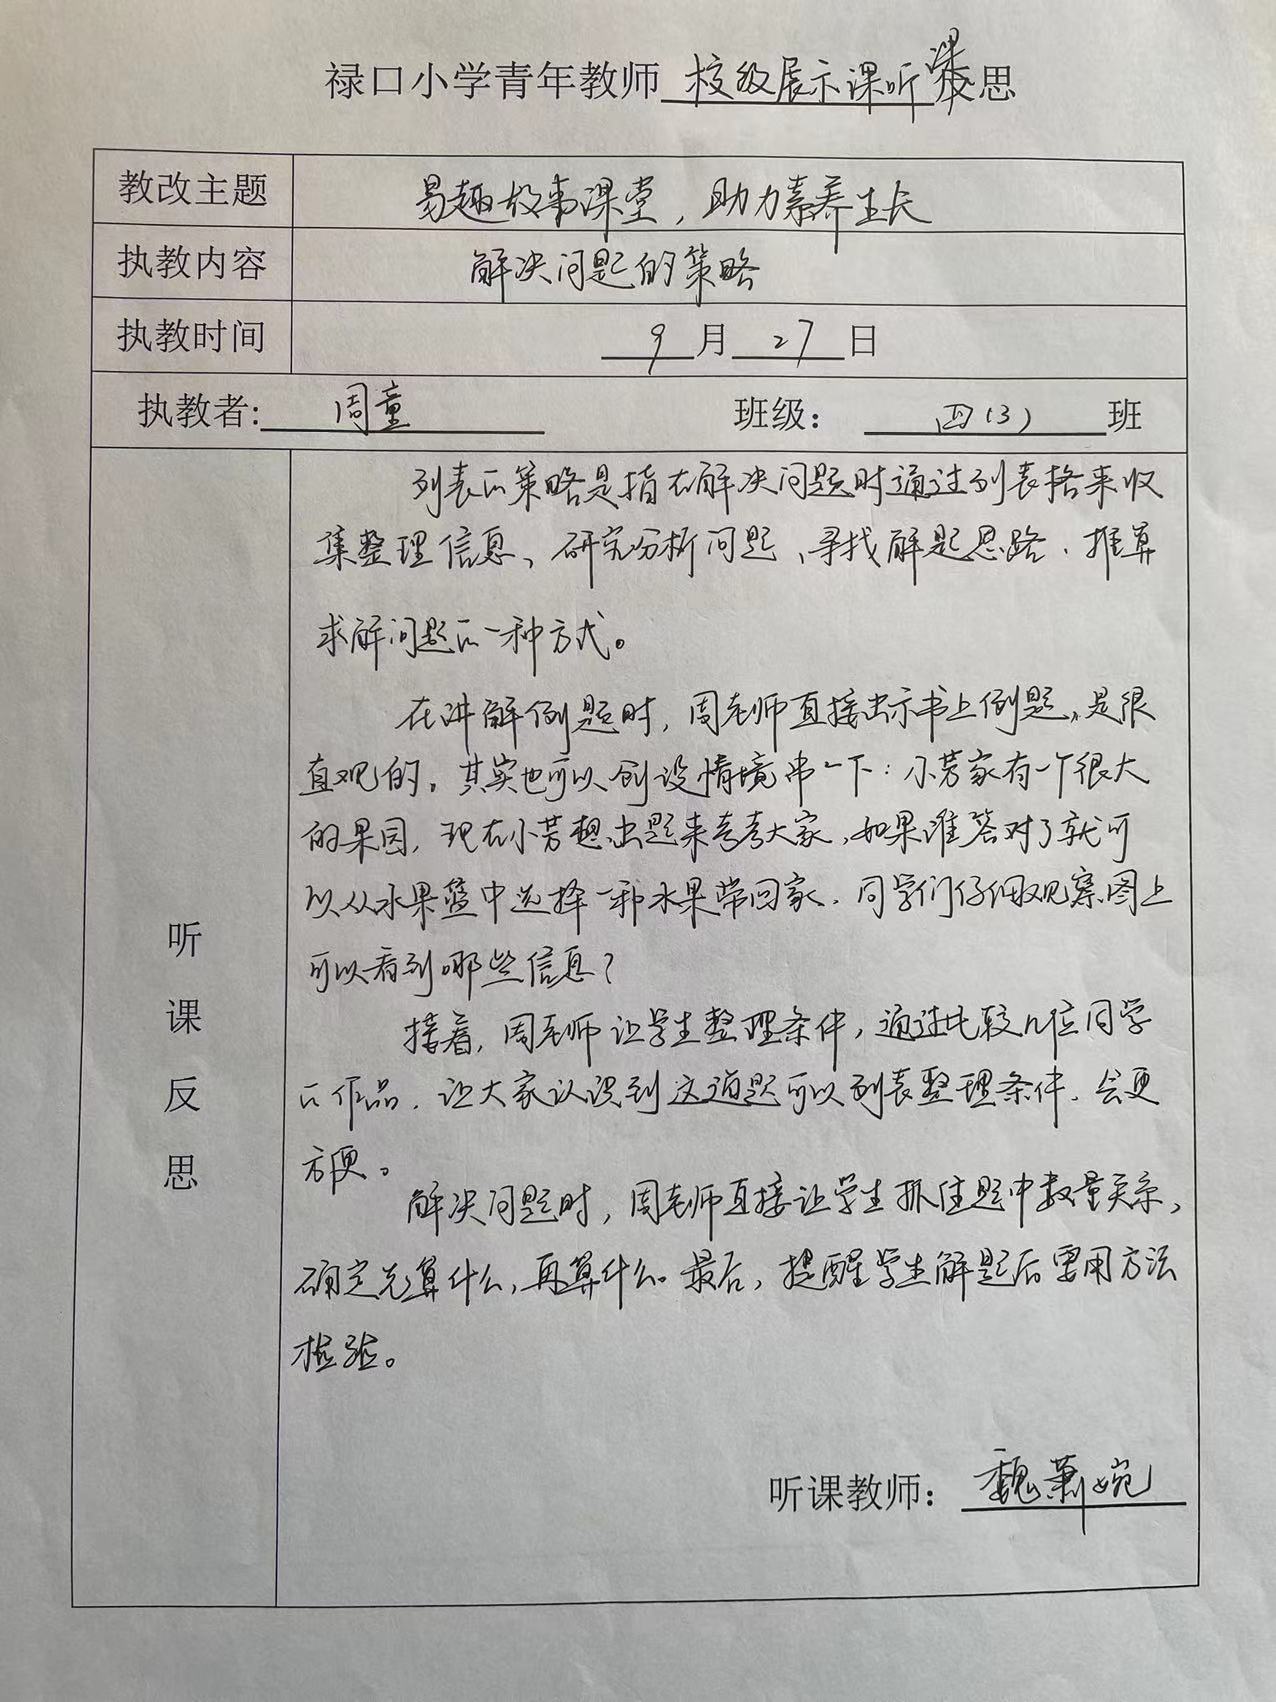 禄口小学青年教师校级展示课听课反思
教改主题 易趣故事课堂，助力素养生长
执教内容 解决问题的策略
执教时间 9月27日
执教者：周童 班级：四（3）班
听课反思
列表的策略是指在解决问题时通过列表格来收
集整理信息、研究分析问题、寻找解题思路、推算
求解问题的一种方式。
在讲解例题时，周老师直接出示书上例题，是很
直观的。其实也可以创设情境串一下：小芳家有一个很大
的果园，现在小芳想出题来考考大家，如果谁答对了就可
以从水果篮中选择一种水果带回家，同学们仔细观察图上
可以看到哪些信息？
接着，周老师让学生整理条件，通过比较几位同学
的作品，让大家认识到这道题可以列表整理条件，会更
方便。
解决问题时，周老师直接让学生抓住题中数量关系，
确定先算什么，再算什么。最后，提醒学生解题后要用方法
检验。
听课教师：魏萧婉